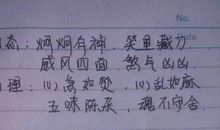 No.
态：炯炯有神，笑里藏刀
威风四面 煞气凶凶
理：心急如焚，心乱如麻
五味陈杂，魂不守舍